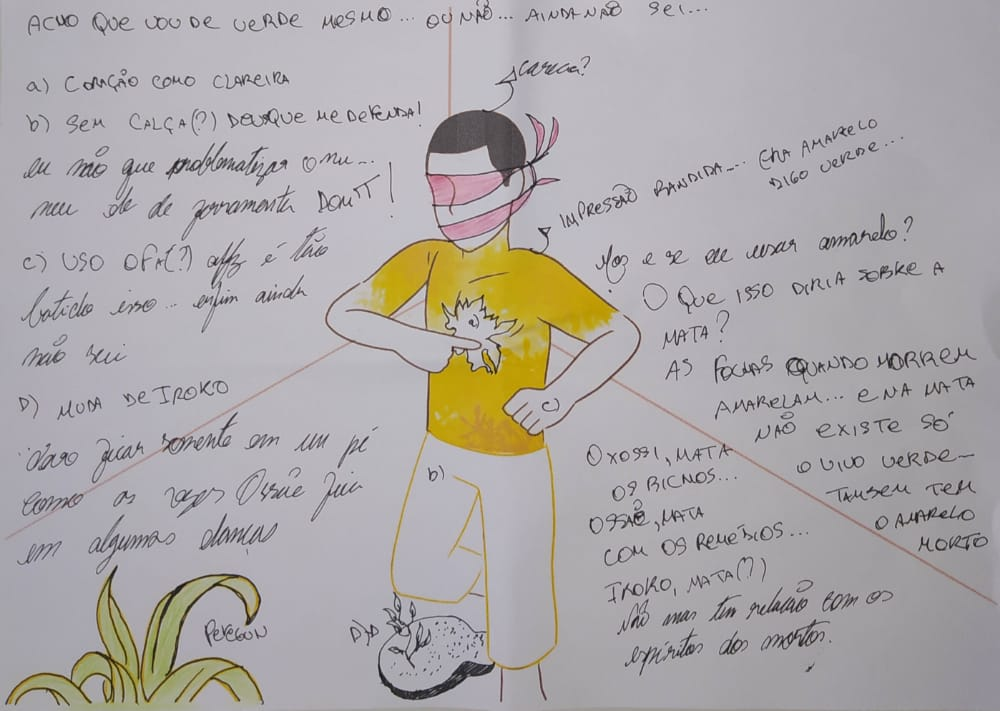 ACHO QUE VOU DE VERDE MESMO... OU NÃO... AINDA NÃO SEI...
a) CORAÇÃO COMO CLAREIRA
b) SEM CALÇA(?) DEUSQUE ME DEFENDA!
eu não que problematizar o nu...
meu de de ferramenta DON'T!
c) USO OFÁ(?) affz é tão
batido isso... enfim ainda
não sei
D) MUDA DE IROKO
ficar somente em um pé
como as vezes Ossãe fica
em algumas danças
PEREGUN
careca?
IMPRESSÃO BANDIDA... ERA AMARELO
DIGO VERDE...
Mas e se eu usar amarelo?
O QUE ISSO DIRIA SOBRE A
MATA?
AS FOLHAS QUANDO MORREM
AMARELAM... E NA MATA
NÃO EXISTE SÓ
O VIVO VERDE-
TAMBEM TEM
O AMARELO
MORTO
OXOSSI, MATA
OS BICHOS...
OSSAE, MATA
COM OS REMÉDIOS...
IROKO, MATA(?)
Não mas tem relação com os
espíritos dos mortos.
b)
D)